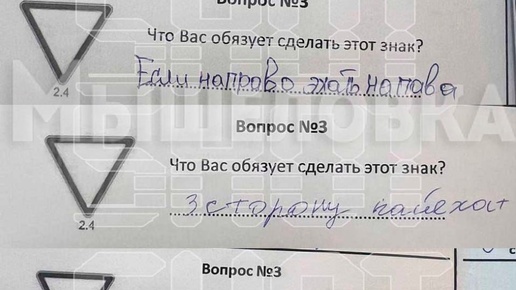 Вопрос №3
Что Вас обязует сделать этот знак?
Если направо эхать на права
2.4
МЫШЛОВКА
Вопрос №3
Что Вас обязует сделать этот знак?
3 сторону паехат
2.4
Вопрос №3